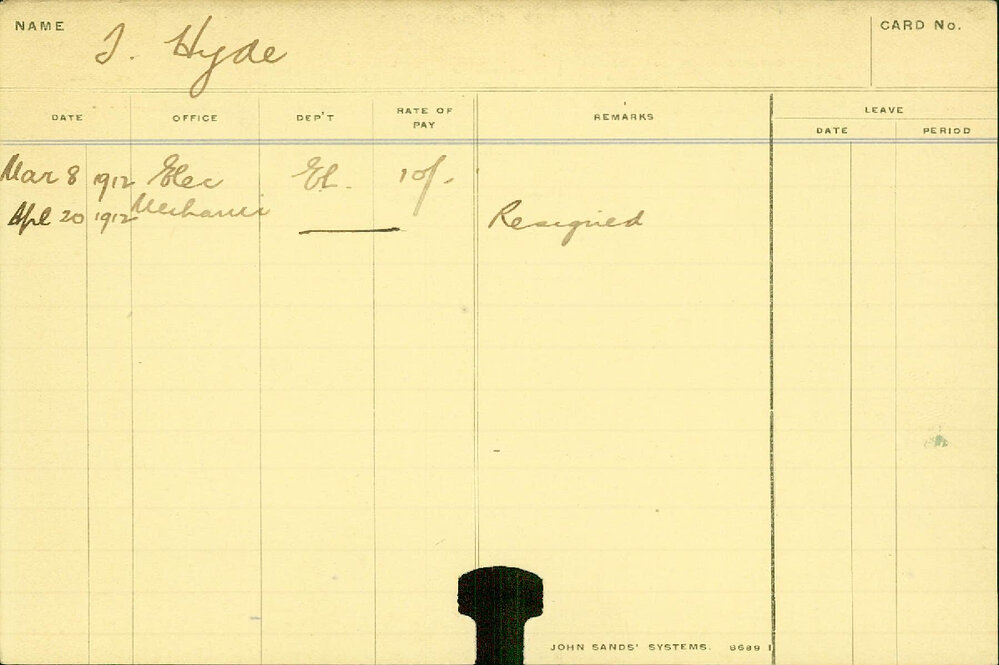 NAME J. Hyde CARD No.
DATE OFFICE DEP'T RATE OF PAY REMARKS LEAVE
DATE PERIOD
Mar 8 1912 Elec El. 10/-
Apl 20 1912 Mechanic Resigned
JOHN SANDS' SYSTEMS. 6689